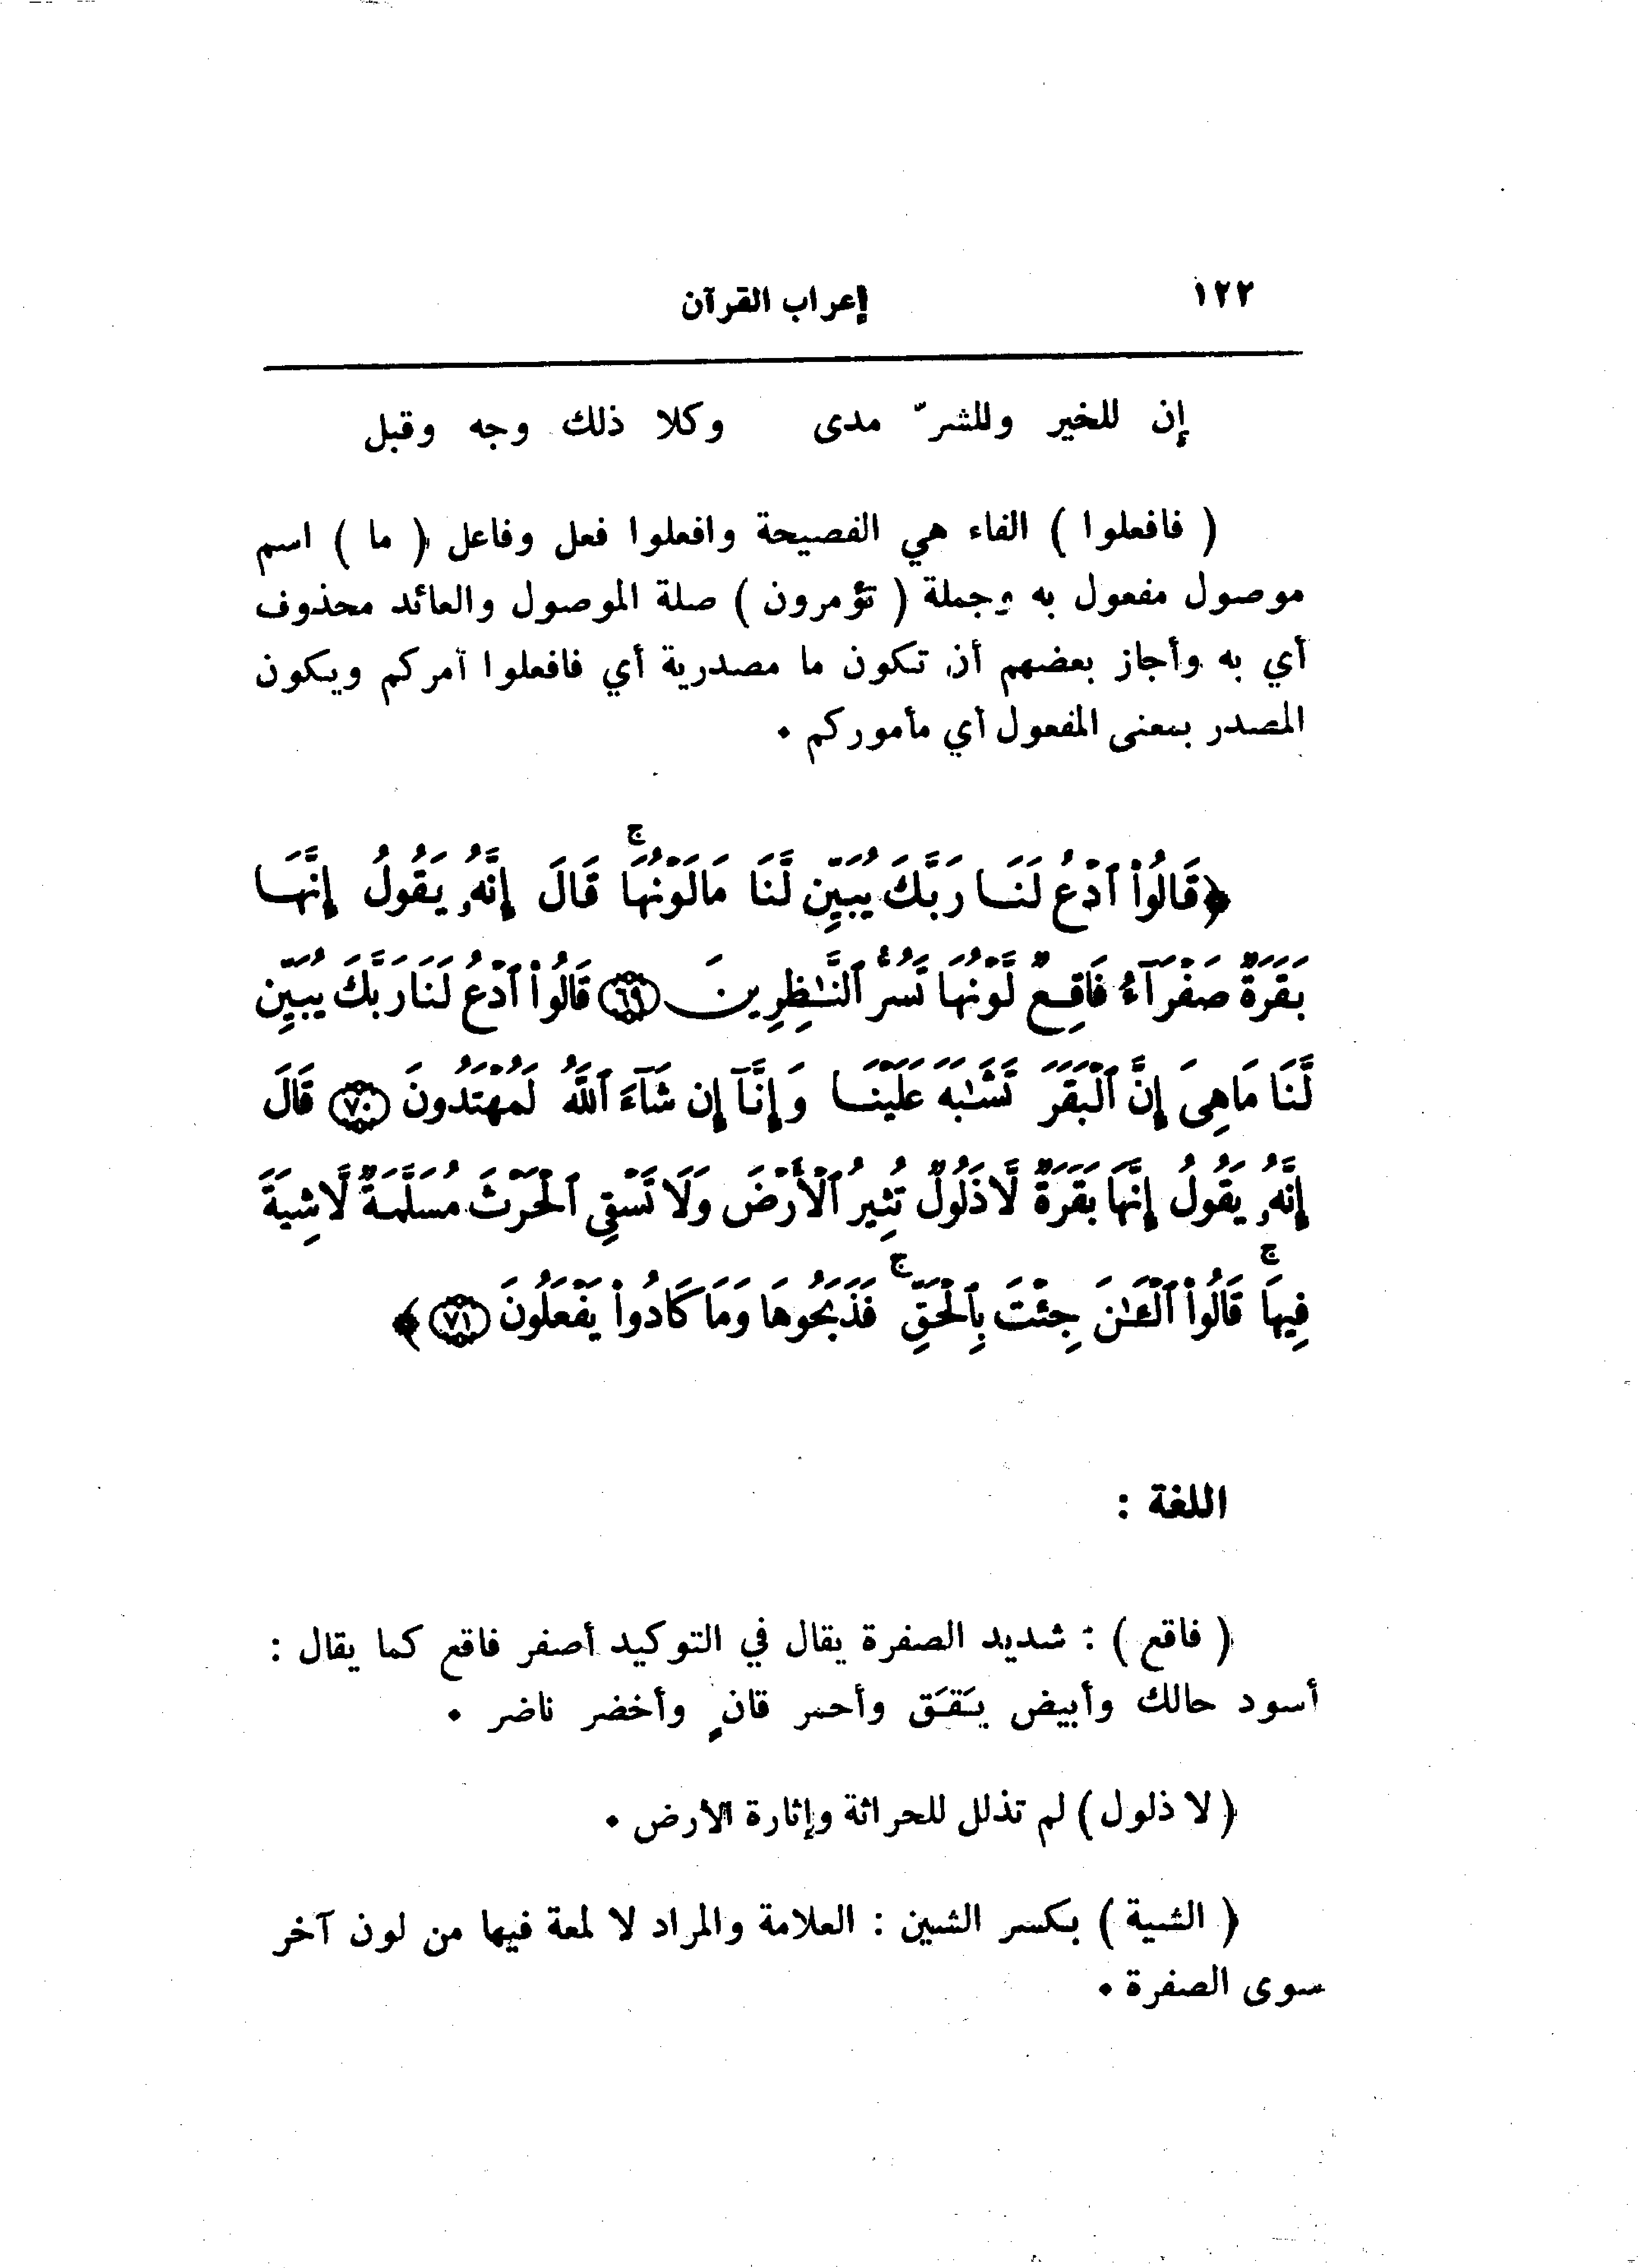 ١٢٢
إعراب القرآن
إن للخير وللشرّ مدى وكلا ذلك وجه وقبل
( فافعلوا ) الفاء هي الفصيحة وافعلوا فعل وفاعل ( ما ) اسم
موصول مفعول به وجملة ( تؤمرون ) صلة الموصول والعائد محذوف
أي به وأجاز بعضهم أن تكون ما مصدرية أي فافعلوا أمركم ويكون
المصدر بمعنى المفعول أي مأموركم ٠
﴿قَالُواْ ٱدْعُ لَنَا رَبَّكَ يُبَيِّن لَّنَا مَا لَوْنُهَا ۚ قَالَ إِنَّهُۥ يَقُولُ إِنَّهَا
بَقَرَةٌ صَفْرَآءُ فَاقِعٌ لَّوْنُهَا تَسُرُّ ٱلنَّٰظِرِينَ ٦٩ قَالُواْ ٱدْعُ لَنَا رَبَّكَ يُبَيِّن
لَّنَا مَا هِىَ إِنَّ ٱلْبَقَرَ تَشَٰبَهَ عَلَيْنَا وَإِنَّآ إِن شَآءَ ٱللَّهُ لَمُهْتَدُونَ ٧٠ قَالَ
إِنَّهُۥ يَقُولُ إِنَّهَا بَقَرَةٌ لَّا ذَلُولٌ تُثِيرُ ٱلْأَرْضَ وَلَا تَسْقِى ٱلْحَرْثَ مُسَلَّمَةٌ لَّا شِيَةَ
فِيهَا ۚ قَالُواْ ٱلْـَٰٔنَ جِئْتَ بِٱلْحَقِّ ۚ فَذَبَحُوهَا وَمَا كَادُواْ يَفْعَلُونَ ٧١﴾
اللغة :
( فاقع ) : شديد الصفرة يقال في التوكيد أصفر فاقع كما يقال :
أسود حالك وأبيض يَقَق وأحمر قانٍ وأخضر ناضر ٠
( لا ذلول ) لم تذلل للحراثة وإثارة الأرض ٠
( الشية ) بكسر الشين : العلامة والمراد لا لمعة فيها من لون آخر
سوى الصفرة ٠